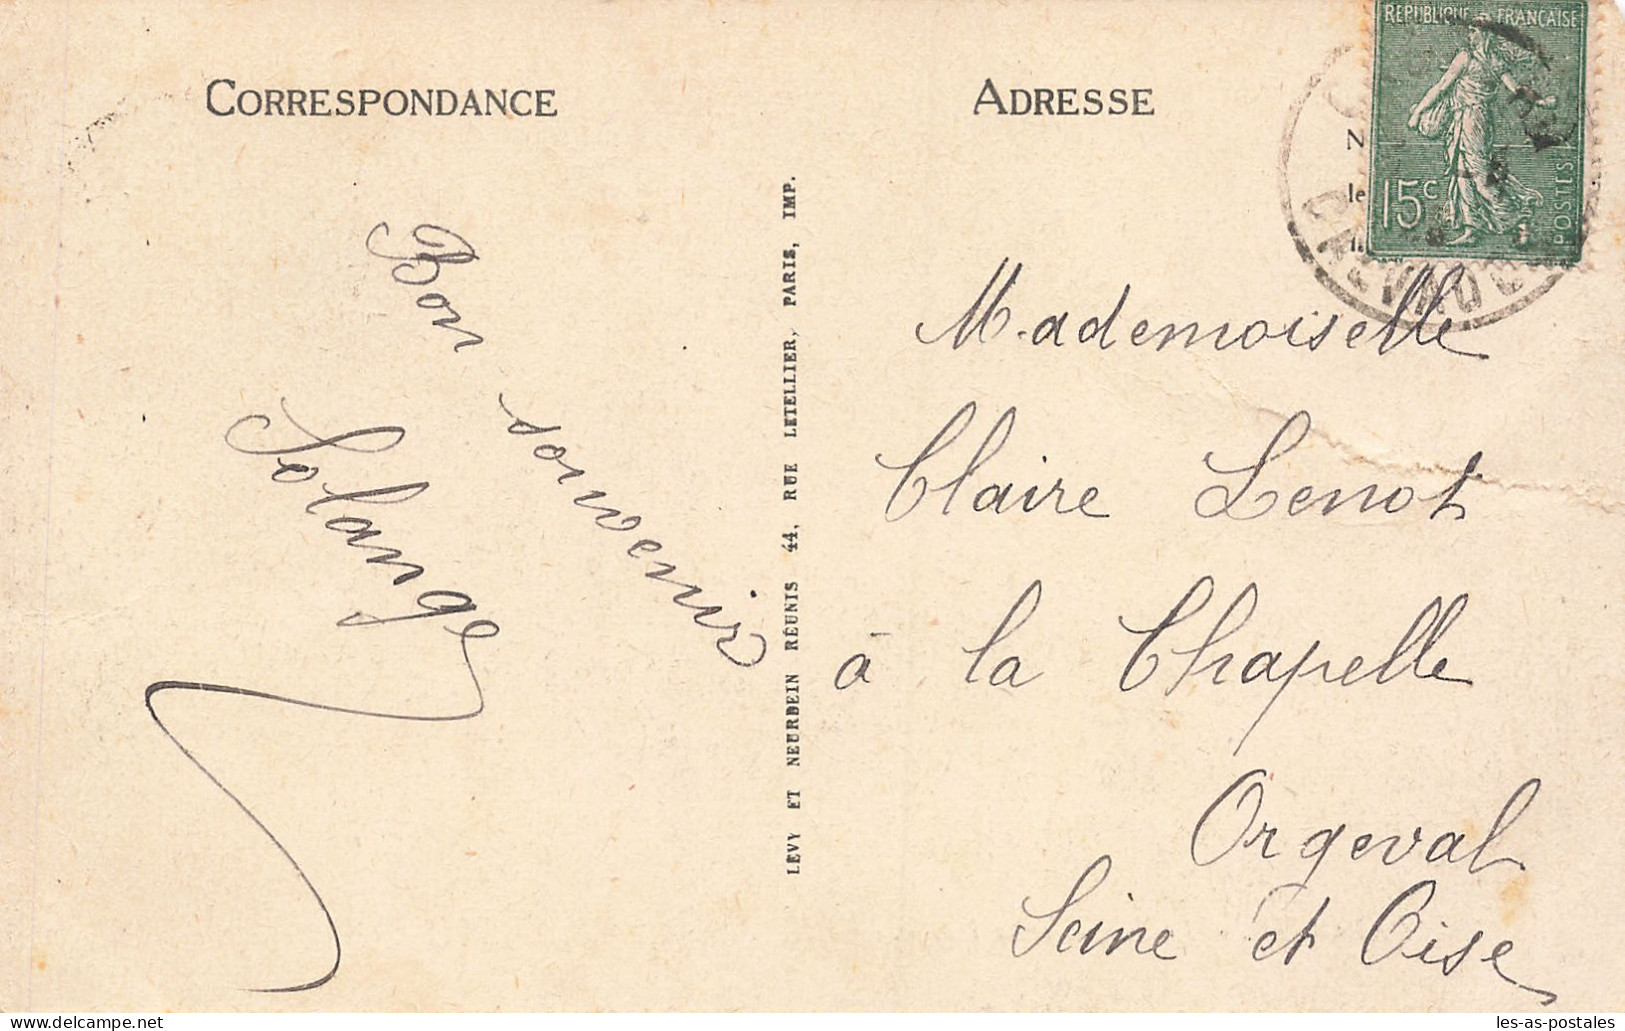 CORRESPONDANCE
Bon
souvenir
Solange
LEVY ET NEURDEIN RÉUNIS 44, RUE LETELLIER, PARIS, IMP.
ADRESSE
REPUBLIQUE FRANÇAISE
15c
POSTES
N
le
Mademoiselle
Claire Lenot
à la Chapelle
Orgeval
Seine et Oise
delcampe.net
les-as-postales